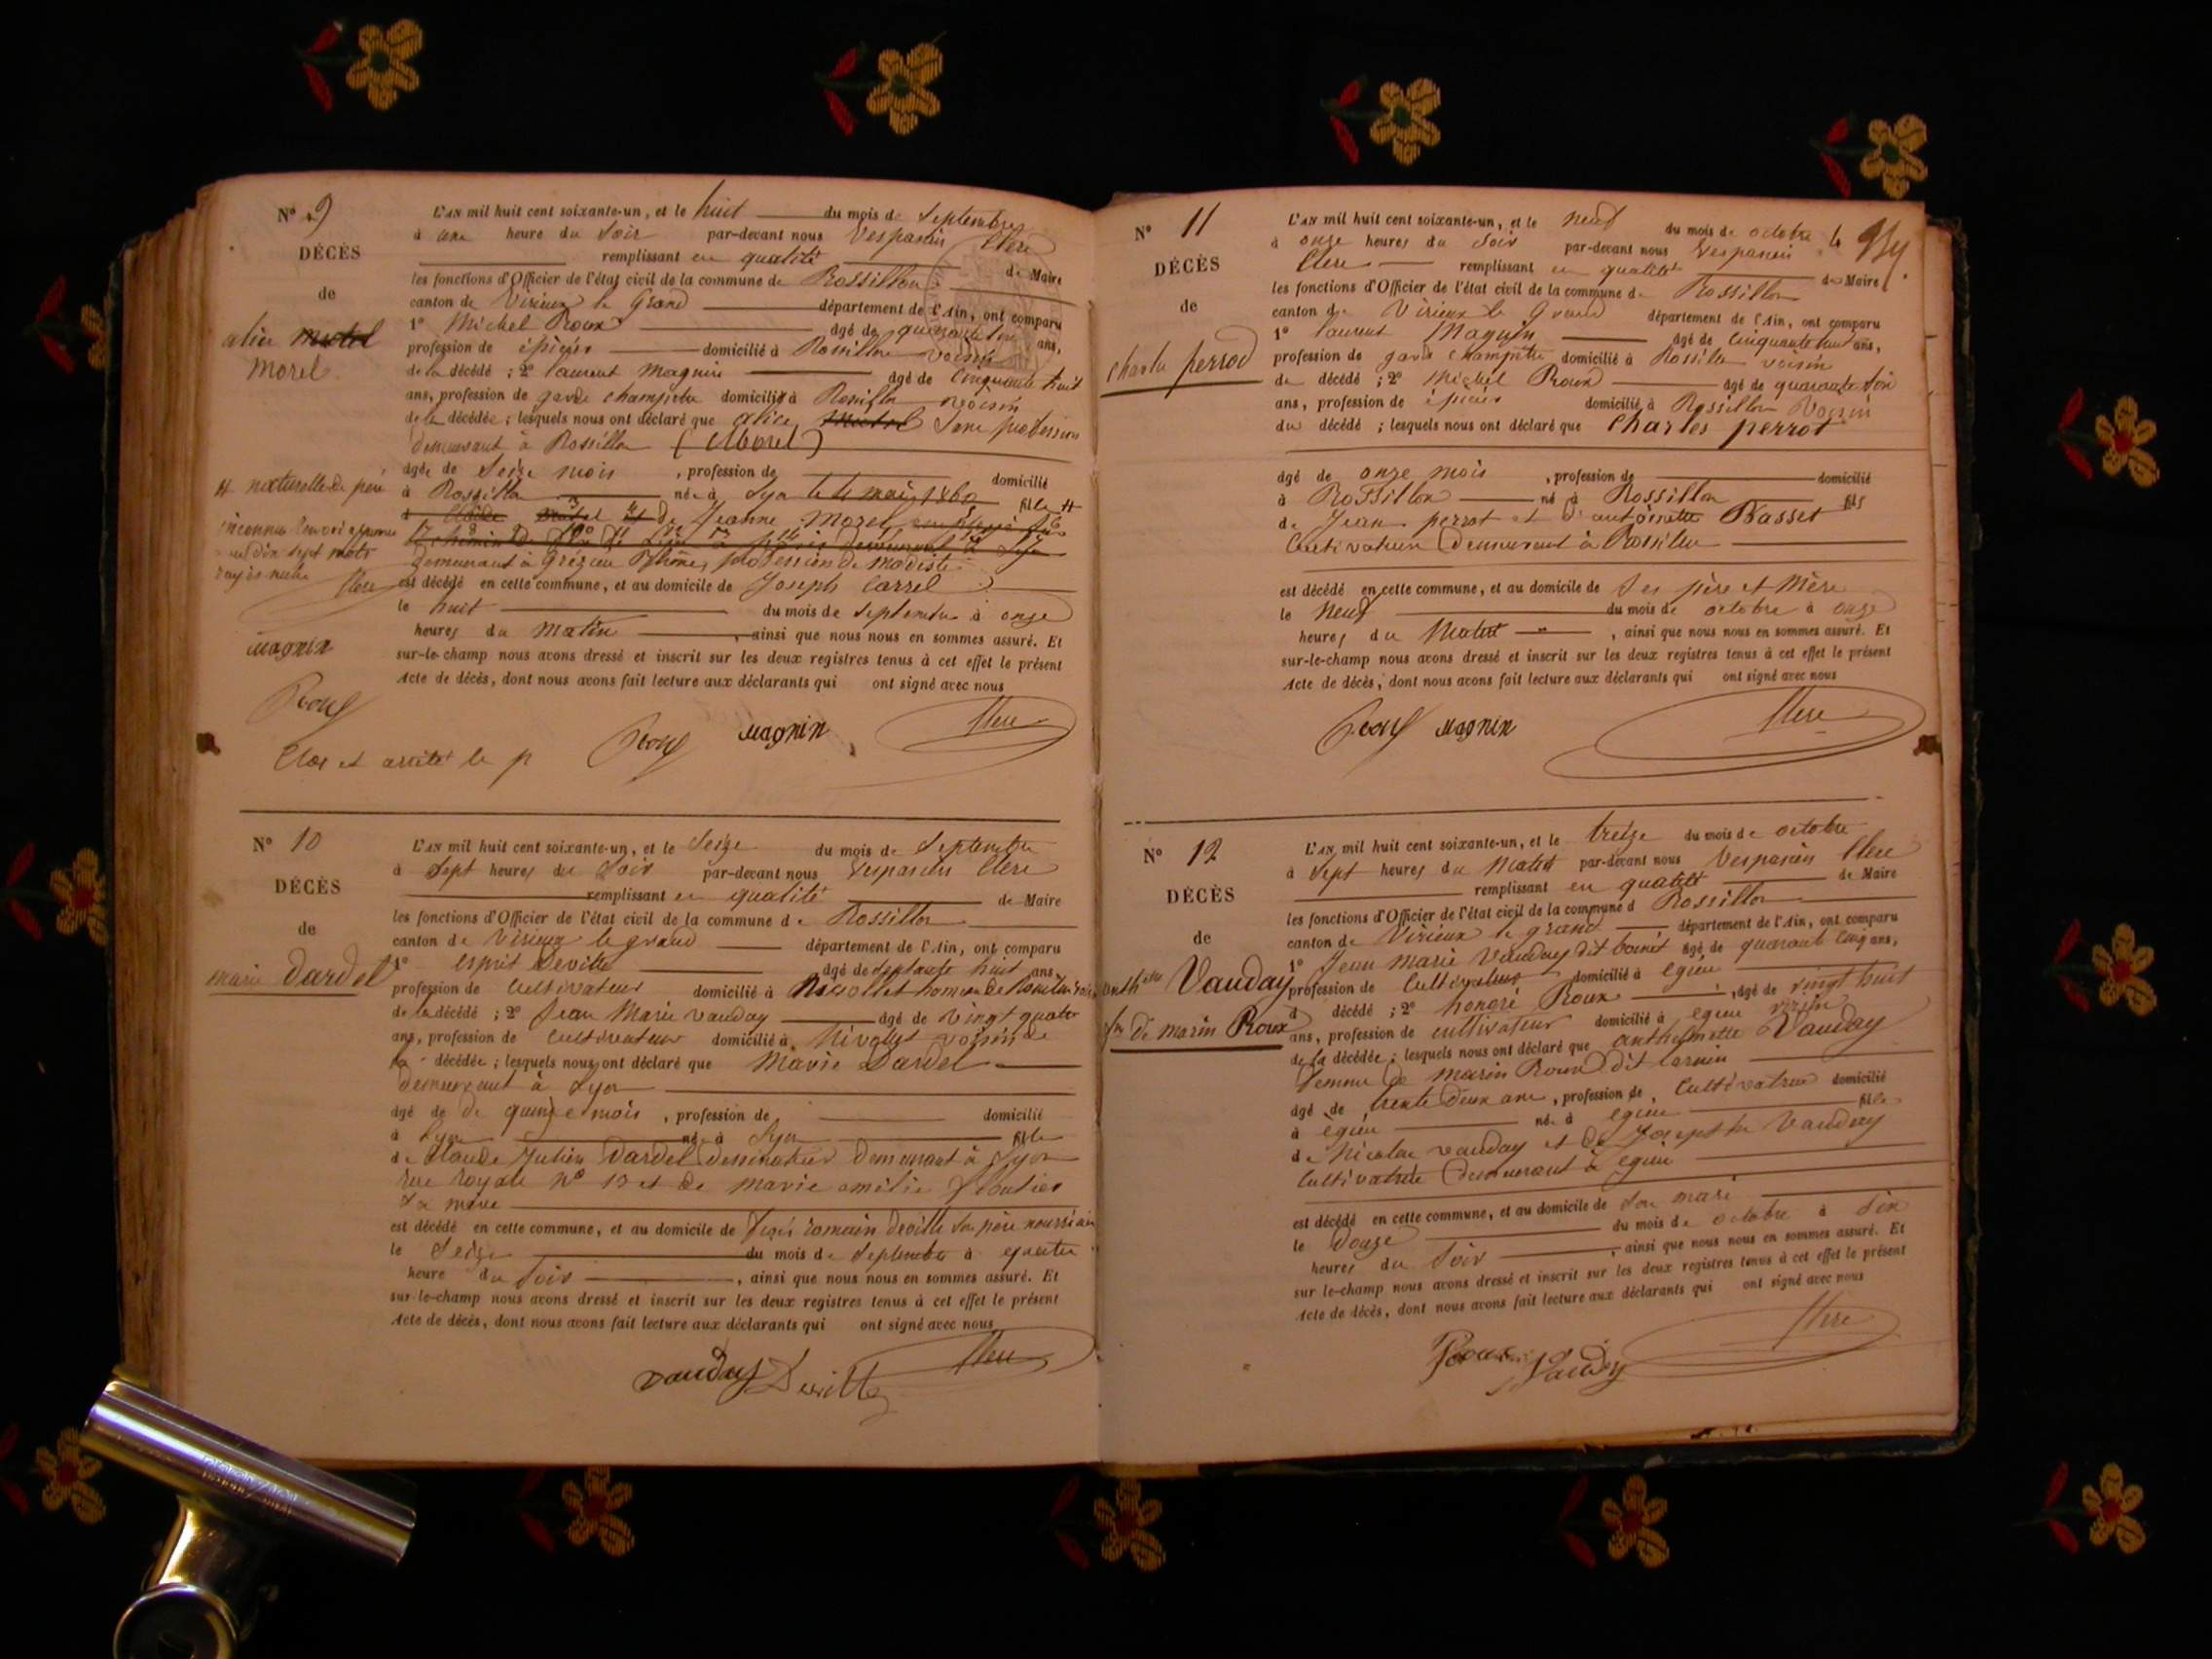 N° 9
DÉCÈS
de
alice Morel
L'AN mil huit cent soixante-un, et le huit du mois de Septembre
à une heure du Soir par-devant nous Vespasien Clerc
remplissant en qualité de Maire
les fonctions d'Officier de l'état civil de la commune de Rossillon
canton de Virieux le Grand département de l'Ain, ont comparu
1° Michel Roux âgé de quarante six ans,
profession de épicier domicilié à Rossillon voisin
de la décédé ; 2° laurent Magnin âgé de Cinquante huit
ans, profession de garde champêtre domicilié à Rossillon voisin
de la décédée ; lesquels nous ont déclaré que alice Sans profession
demeurant à Rossillon (Morel)
âgée de Seize mois , profession de domicilié
à Rossillon née à Lyon le 4 mai 1860 fille #
de Jeanne Morel
demeurant à Grézieu Rhône, profession de modiste
est décédé en cette commune, et au domicile de Joseph Carrel
le huit du mois de Septembre à onze
heures du Matin , ainsi que nous nous en sommes assuré. Et
sur-le-champ nous avons dressé et inscrit sur les deux registres tenus à cet effet le présent
Acte de décès, dont nous avons fait lecture aux déclarants qui ont signé avec nous
# naturelle de père
inconnu
dix sept mots
rayés nuls
Clerc
Magnin
Roux
Clos et arrêté le p
Roux Magnin Clerc
N° 10
DÉCÈS
de
marie Dardel
L'AN mil huit cent soixante-un, et le Seize du mois de Septembre
à Sept heures du Soir par-devant nous Vespasien Clerc
remplissant en qualité de Maire
les fonctions d'Officier de l'état civil de la commune de Rossillon
canton de Virieux le grand département de l'Ain, ont comparu
1° Esprit Deville âgé de Septante huit ans
profession de Cultivateur domicilié à
de la décédé ; 2° Jean Marie Vauday âgé de Vingt quatre
ans, profession de Cultivateur domicilié à voisin de
la décédée ; lesquels nous ont déclaré que Marie Dardel
demeurant à Lyon
âgé de de quinze mois , profession de domicilié
à Lyon née à Lyon fille
de Claude Julien Dardel Dessinateur Demeurant à Lyon
rue Royale N° 13 et de marie amélie
Sa mère
est décédé en cette commune, et au domicile de romain Deville Son père nourricier
le Seize du mois de Septembre à quatre
heure du Soir , ainsi que nous nous en sommes assuré. Et
sur-le-champ nous avons dressé et inscrit sur les deux registres tenus à cet effet le présent
Acte de décès, dont nous avons fait lecture aux déclarants qui ont signé avec nous
Vauday Deville Clerc
N° 11
DÉCÈS
de
charles perrod
L'AN mil huit cent soixante-un, et le neuf du mois de octobre
à onze heures du Soir par-devant nous Vespasien
Clerc remplissant en qualité de Maire
les fonctions d'Officier de l'état civil de la commune de Rossillon
canton de Virieux le Grand département de l'Ain, ont comparu
1° laurent Magnin âgé de Cinquante huit ans,
profession de garde champêtre domicilié à Rossillon voisin
du décédé ; 2° Michel Roux âgé de quarante Six
ans, profession de épicier domicilié à Rossillon Voisin
du décédé ; lesquels nous ont déclaré que Charles perrot
âgé de onze mois , profession de domicilié
à Rossillon né à Rossillon fils
de Jean perrot et D'antoinette Basset
Cultivateurs Demeurant à Rossillon
est décédé en cette commune, et au domicile de Ses père et Mère
le Neuf du mois de octobre à onze
heures du Matin , ainsi que nous nous en sommes assuré. Et
sur-le-champ nous avons dressé et inscrit sur les deux registres tenus à cet effet le présent
Acte de décès, dont nous avons fait lecture aux déclarants qui ont signé avec nous
Roux Magnin Clerc
N° 12
DÉCÈS
de
Vauday
fme de marin Roux
L'AN mil huit cent soixante-un, et le treize du mois de octobre
à Sept heures du Matin par-devant nous Vespasien Clerc
remplissant en qualité de Maire
les fonctions d'Officier de l'état civil de la commune d Rossillon
canton de Virieux le grand département de l'Ain, ont comparu
1° Jean marie Vauday dit âgé de quarante Cinq ans,
profession de Cultivateur domicilié à Egieu
d décédé ; 2° honoré Roux , âgé de vingt huit
ans, profession de cultivateur domicilié à Egieu voisin
de la décédée ; lesquels nous ont déclaré que anthelmette Vauday
femme de marin Roux dit
âgé de trente Deux ans , profession de Cultivatrice domicilié
à Egieu née à Egieu fille
de Nicolas Vauday et de Josephte Vauday
Cultivatrice Demeurant à Egieu
est décédé en cette commune, et au domicile de Son mari
le Douze du mois de octobre à Six
heures du Soir , ainsi que nous nous en sommes assuré. Et
sur-le-champ nous avons dressé et inscrit sur les deux registres tenus à cet effet le présent
Acte de décès, dont nous avons fait lecture aux déclarants qui ont signé avec nous
Roux Vauday Clerc